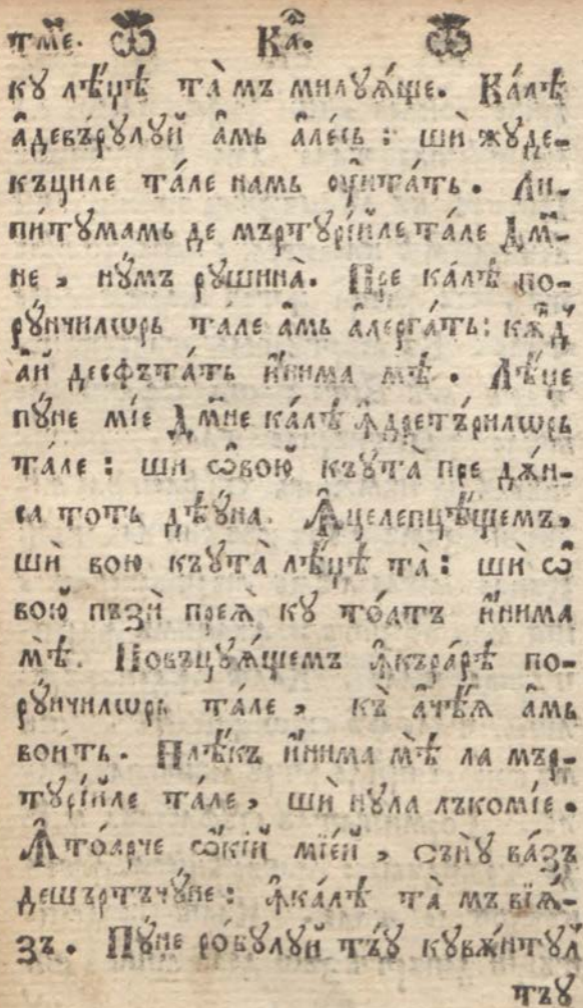 тм҃е. Ка҃.
кꙋ лѣ́ѱѣ та̀ мъ милꙋѧ́ще. Ка́лѣ
а҆девъ́рꙋлꙋй а҆мь а҆ле́сь : шѝ жꙋде-
къциле та́ле намь ᲂу҆ита́ть. Ли-
пи́тꙋмамь де мъртꙋрі́йле та́ле Дм҃-
не , нꙋ́мъ рꙋшина̀. Пре ка́лѣ по-
рꙋ́нчилѡрь та́ле а҆мь а҆лерга́ть: кѫ҃д
а҆й десфъта́ть и҆́нима мѣ̀ . Лѣ́ѱе
пꙋ́не мі́е Дм҃не ка́лѣ ꙟ҆дретъ́рилѡрь
та́ле : ши ѡ҆вою̀ къꙋта̀ пре дѫ́н-
са тоть дѣꙋ́на. Ꙟ҆целепцѣ́щемъ,
шѝ вою къꙋта̀ лѣ́ѱѣ та̀ : шѝ ѡ҆
вою̀ пъзѝ преѧ̀ кꙋ то́атъ и҆́нима
мѣ̀. Повъцꙋѧ́щемъ ꙟ҆къра́рѣ по-
рꙋ́нчилѡрь та́ле , къ а҆чѣ́ѧ а҆мь
вои́ть. Плѣ́къ и҆́нима мѣ̀ ла мър-
тꙋрі́йле та́ле , шѝ нꙋла лъкомі́е .
Ꙟ҆то́арче ѡ҆́кій мїе́й , съ́нꙋ ва́зъ
дешъртъчꙋ́не : ꙟ҆ка́лѣ та̀ мъ вїѧ́-
зъ. Пꙋ́не ро́бꙋлꙋй тъ́ꙋ кꙋвѫ́нтꙋл
тъꙋ